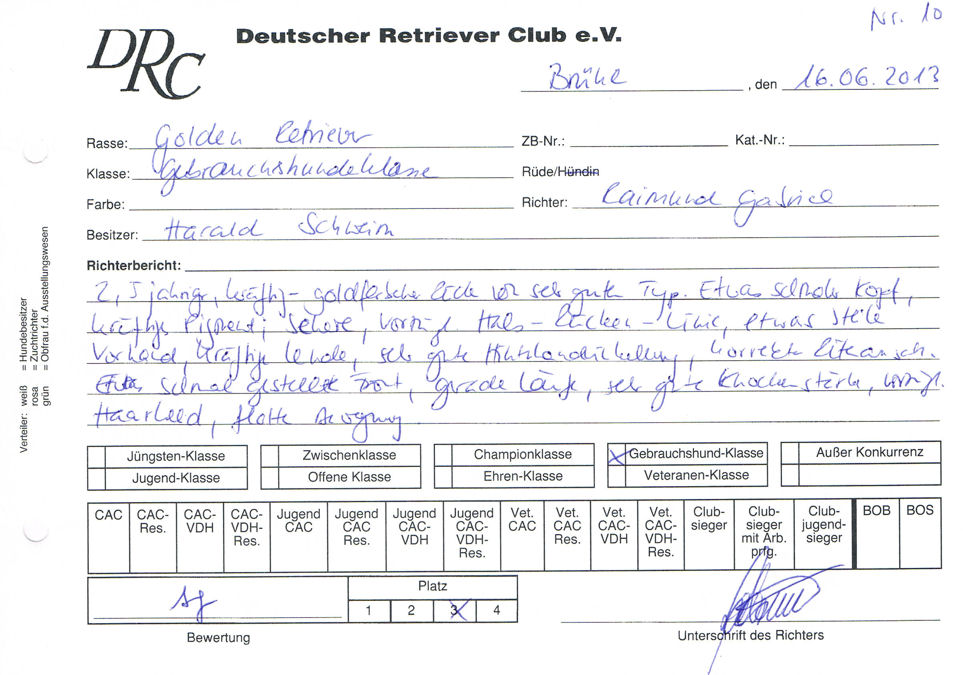 Nr. 10
DRC
Deutscher Retriever Club e.V.
Brühl, den 16.06.2013
Rasse: Golden Retriever ZB-Nr.: Kat.-Nr.:
Klasse: Gebrauchshundeklasse Rüde/Hündin
Farbe: Richter: Raimund Gabriel
Besitzer: Harald Schwirn
Richterbericht:
2,5 jähriger, kräftig- goldfarbener Rüde von sehr guten Typ. Etwas schmaler Kopf,
kräftige Pigment; Schere, vorzügl. Hals-Rücken-Linie, etwas steile
Vorhand, kräftige Lende, sehr gute Hinterhandwinkelung, korrekter Rutenansch.
Etwas schmal gestellte Front, gerade Läufe, sehr gute Knochenstärke, vorzügl.
Haarkleid, flotte Bewegung
Jüngsten-Klasse Zwischenklasse Championklasse Gebrauchshund-Klasse Außer Konkurrenz
Jugend-Klasse Offene Klasse Ehren-Klasse Veteranen-Klasse
CAC CAC-Res. CAC-VDH CAC-VDH-Res. Jugend CAC Jugend CAC Res. Jugend CAC-VDH Jugend CAC-VDH-Res. Vet. CAC Vet. CAC Res. Vet. CAC-VDH Vet. CAC-VDH-Res. Club-sieger Club-sieger mit Arb. prfg. Club-jugend-sieger BOB BOS
sg
Platz
1 2 3 4
Bewertung
Unterschrift des Richters
Verteiler: weiß = Hundebesitzer
rosa = Zuchtrichter
grün = Obfrau f.d. Ausstellungswesen